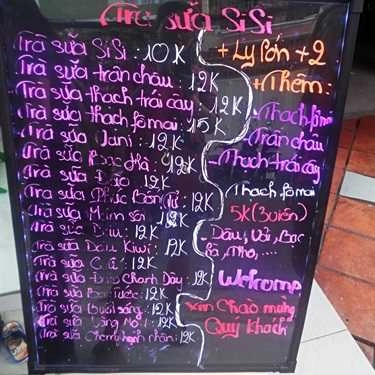 Trà sữa SiSi
Trà sữa SiSi : 10K
Trà sữa trân châu : 12K
Trà sữa thạch trái cây : 12K
Trà sữa thạch fomai : 15K
Trà sữa Vani : 12K
Trà sữa Bạc Hà : 12K
Trà sữa Dừa 12K
Trà sữa Phúc Bồn Tử : 12K
Trà sữa : 12K
Trà sữa Dâu : 12K
Trà sữa Dâu Kiwi : 12K
Trà sữa : 12K
Trà sữa Chanh Dây : 12K
Trà sữa Bạc : 12K
Trà sữa : 12K
Trà sữa : 12K
Trà sữa : 12K
+ Ly lớn + 2
+ Thêm :
- Thạch fomai
- Trân châu
- Thạch trái cây
Thạch fomai
5K (3 viên)
- Dâu, Vải, Bạc
hà, Nho, ....
Welcome
Xin Chào mừng
Quý Khách